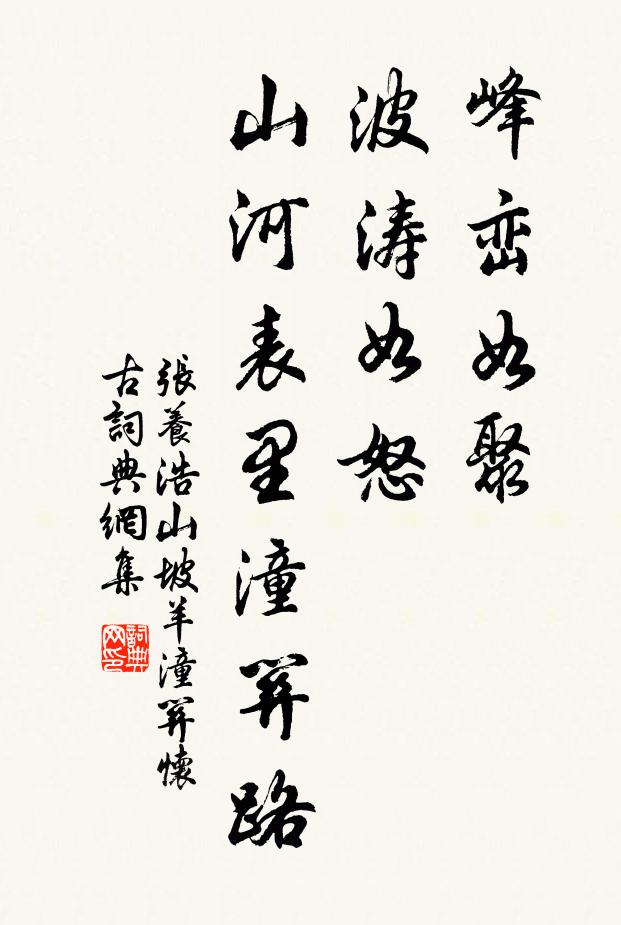 峰峦如聚
波涛如怒
山河表里潼關路
張養浩山坡羊潼關懷
古詞典網集
詞典网印